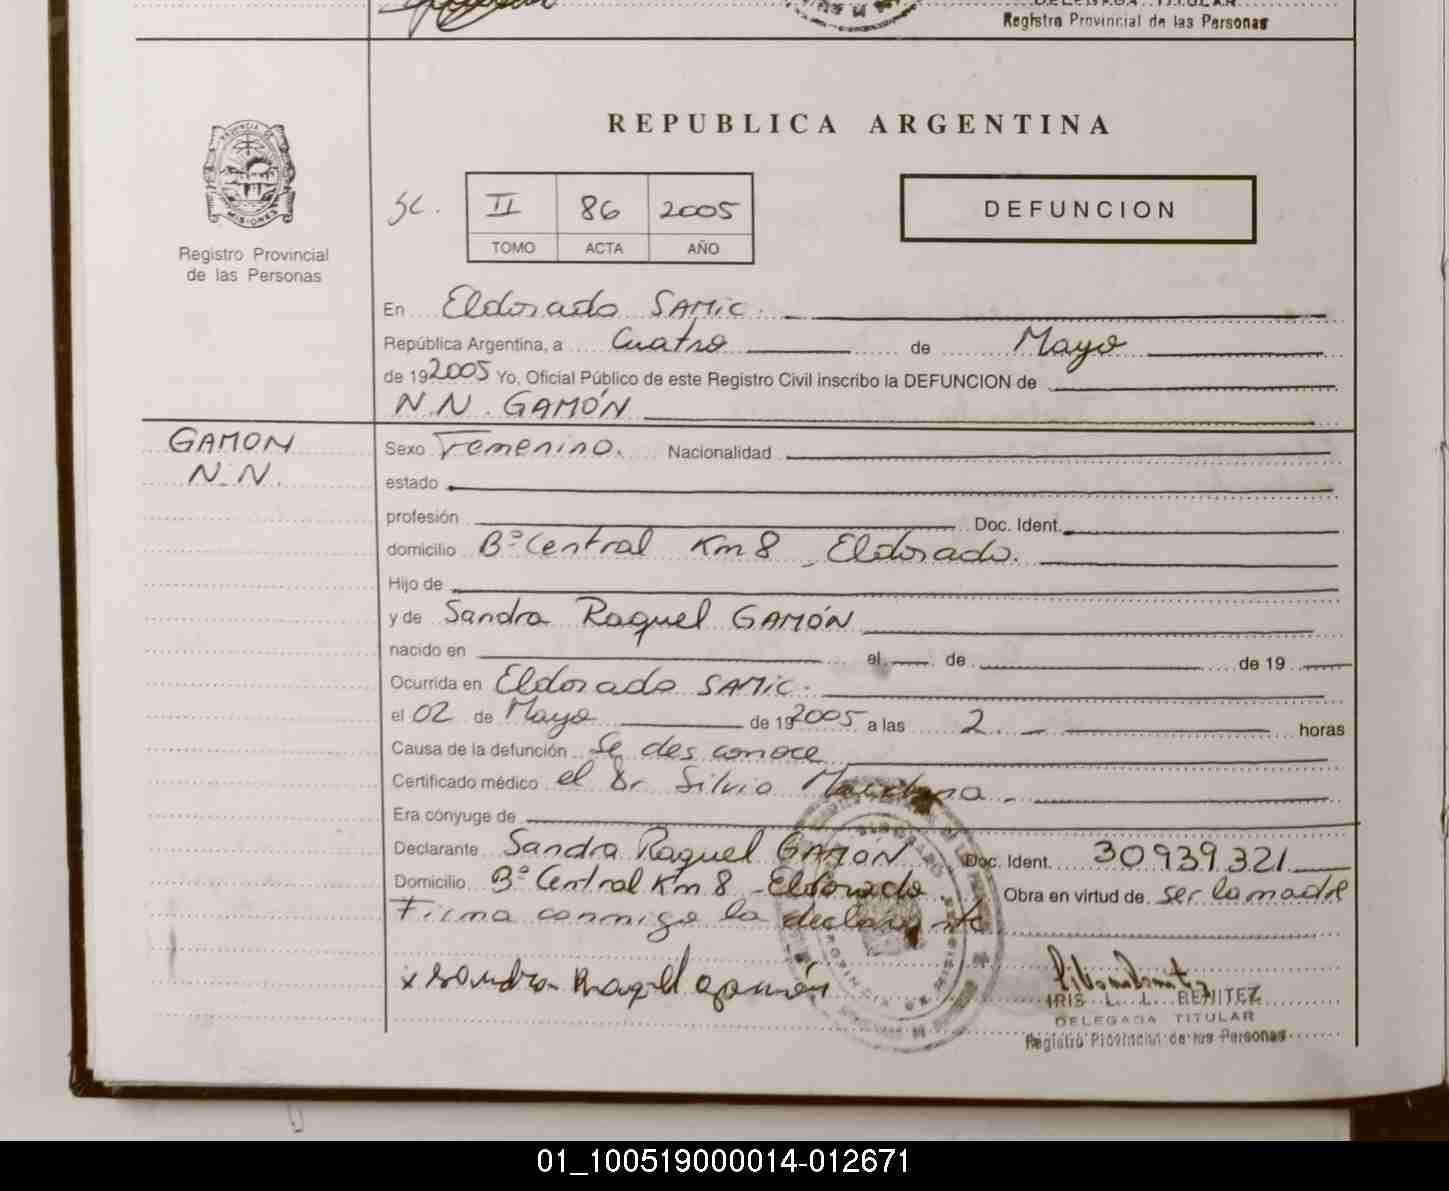 DELEGADA TITULAR
Registro Provincial de las Personas
PROVINCIA DE
MISIONES
Registro Provincial
de las Personas
REPUBLICA ARGENTINA
SC. II 86 2005
TOMO ACTA AÑO
DEFUNCION
En Eldorado SAMIC.
República Argentina, a Cuatro de Mayo
de 192005 Yo, Oficial Público de este Registro Civil inscribo la DEFUNCION de
N.N. GAMÓN
GAMON
N.N.
Sexo Femenino. Nacionalidad
estado
profesión Doc. Ident.
domicilio Bº Central Km 8, Eldorado.
Hijo de
y de Sandra Raquel GAMÓN
nacido en el de de 19
Ocurrida en Eldorado SAMIC.
el 02 de Mayo de 192005 a las 2 horas
Causa de la defunción Se desconoce
Certificado médico el Dr Silvio
Era cónyuge de
Declarante Sandra Raquel GAMÓN Doc. Ident. 30939321
Domicilio Bº Central Km 8 - Eldorado Obra en virtud de ser la madre
Firma conmigo la declarante
x Sandra Raquel gamón
IRIS L. L. BENITEZ
DELEGADA TITULAR
Registro Provincial de las Personas
01_100519000014-012671